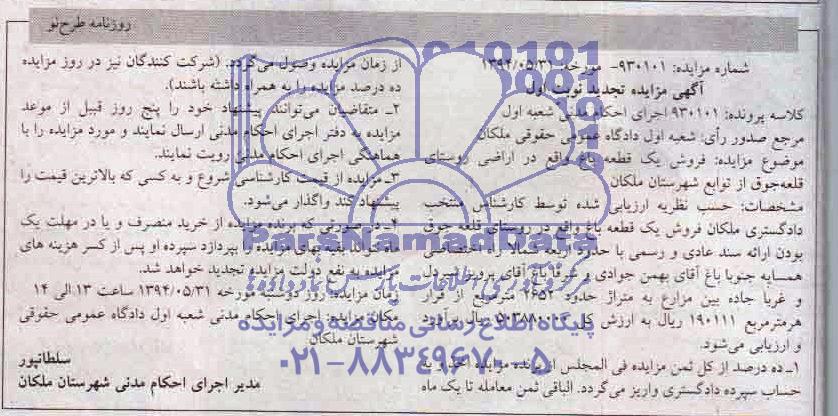 روزنامه طرح‌نو
شماره مزایده: ۹۳۰۱۰۱- مورخه ۱۳۹۴/۰۵/۳۱
آگهی مزایده تجدید نوبت اول
کلاسه پرونده: ۹۳۰۱۰۱ اجرای احکام مدنی شعبه اول
مرجع صدور رأی: شعبه اول دادگاه عمومی حقوقی ملکان
موضوع مزایده: فروش یک قطعه باغ واقع در اراضی روستای
قلعه‌جوق از توابع شهرستان ملکان
مشخصات: حسب نظریه ارزیابی شده توسط کارشناس منتخب
دادگستری ملکان فروش یک قطعه باغ واقع در روستای قلعه جوق
بودن ارائه سند عادی و رسمی با حدود اربعه شمالا راه اختصاصی
همسایه جنوبا باغ آقای بهمن جوادی و شرقا باغ آقای پرویز شیردل
و غربا جاده بین مزارع به متراژ حدود ۲۶۵۲ مترمربع از قرار
هرمترمربع ۱۹۰۱۱۱ ریال به ارزش کل ریال برآورد
و ارزیابی می‌شود.
۱ـ ده درصد از کل ثمن مزایده فی المجلس از برنده مزایده اخذ و به
حساب سپرده دادگستری واریز می‌گردد. الباقی ثمن معامله تا یک ماه
از زمان مزایده وصول می‌گردد. (شرکت کنندگان نیز در روز مزایده
ده درصد مزایده را به همراه داشته باشند).
۲ـ متقاضیان می‌توانند پیشنهاد خود را پنج روز قبیل از موعد
مزایده به دفتر اجرای احکام مدنی ارسال نمایند و مورد مزایده را با
هماهنگی اجرای احکام مدنی رویت نمایند.
۳ـ مزایده از قیمت کارشناسی شروع و به کسی که بالاترین قیمت را
پیشنهاد کند واگذار می‌شود.
۴ـ در صورتی که برنده مزایده از خرید منصرف و یا در مهلت یک
ماه نتواند بقیه بهای مزایده را بپردازد سپرده او پس از کسر هزینه های
مزایده به نفع دولت مزایده تجدید خواهد شد.
زمان مزایده: روز دوشنبه مورخه ۱۳۹۴/۰۵/۳۱ ساعت ۱۳ الی ۱۴
مکان مزایده: اجرای احکام مدنی شعبه اول دادگاه عمومی حقوقی
شهرستان ملکان
سلطانپور
مدیر اجرای احکام مدنی شهرستان ملکان
ParsNamadData
پایگاه اطلاع رسانی مناقصه و مزایده
۰۲۱-۸۸۳۴۹۶۷۰-۵